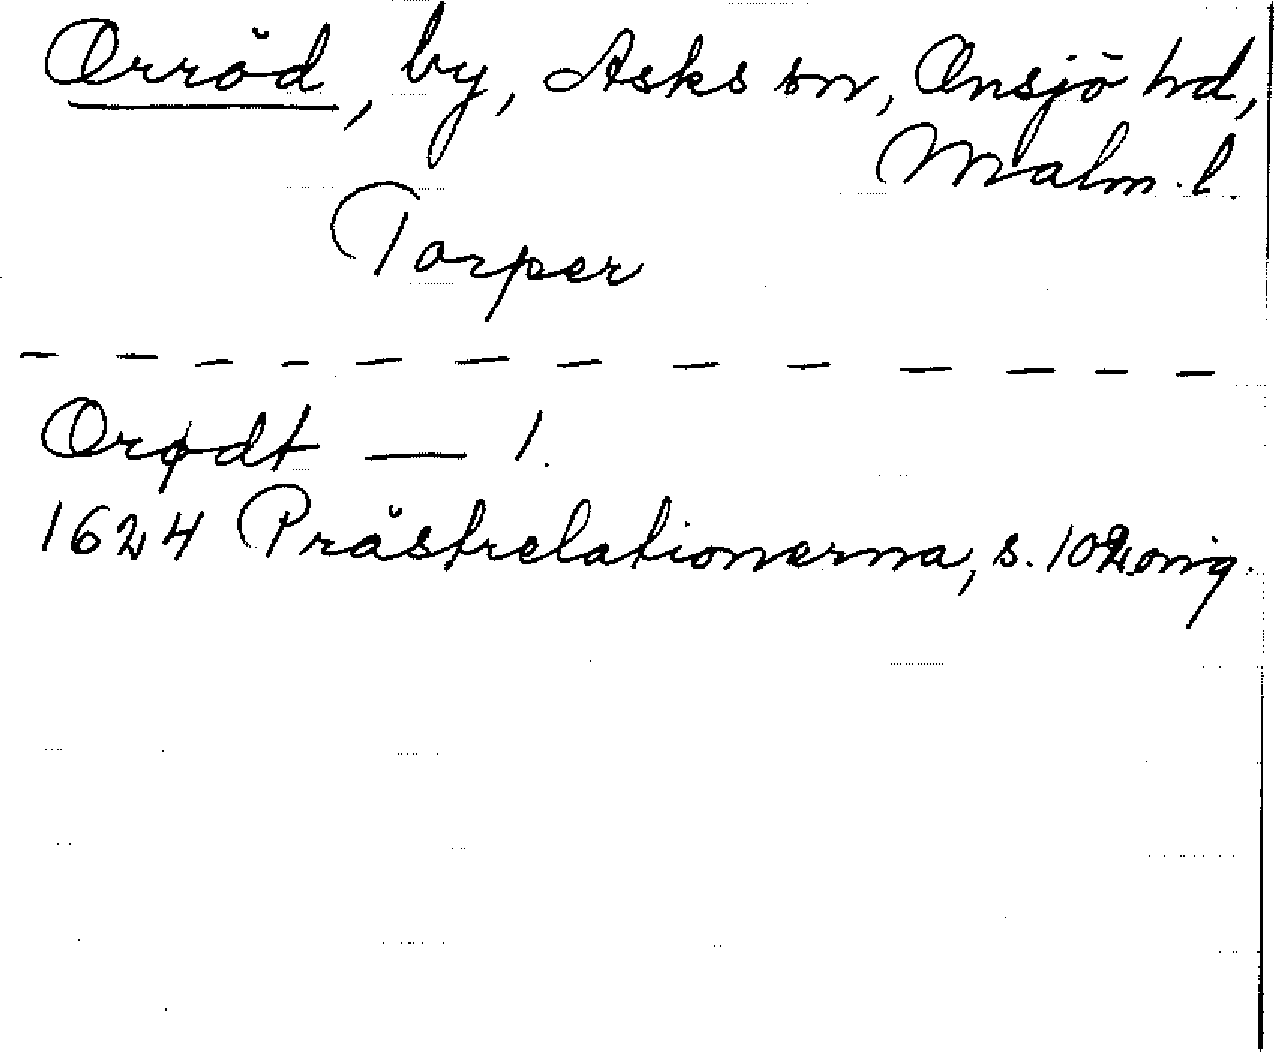 Orröd, by, Asks sn, Onsjö hd,
Malm. l.
Torper
— — — — — — — — — — — — —
Orødt — 1.
1624 Prästrelationerna, s. orig.